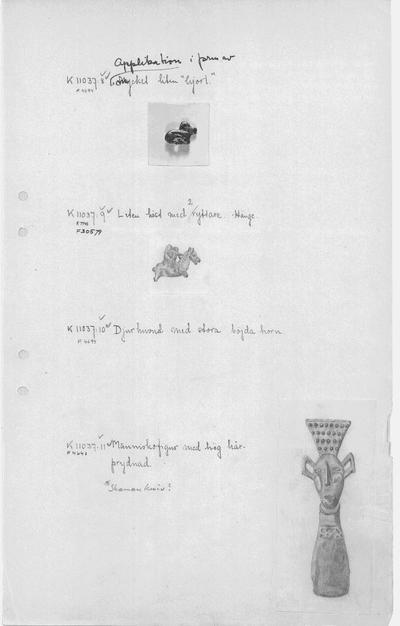 Applikation i form av
K 11037:8 mycket liten "hjort."
K 11037:9 Liten häst med 2 ryttare. Hänge.
F30579
K 11037:10 Djurhuvud med stora böjda horn
K 11037:11 Människofigur med hög hår-
prydnad.
"Shaman kniv?